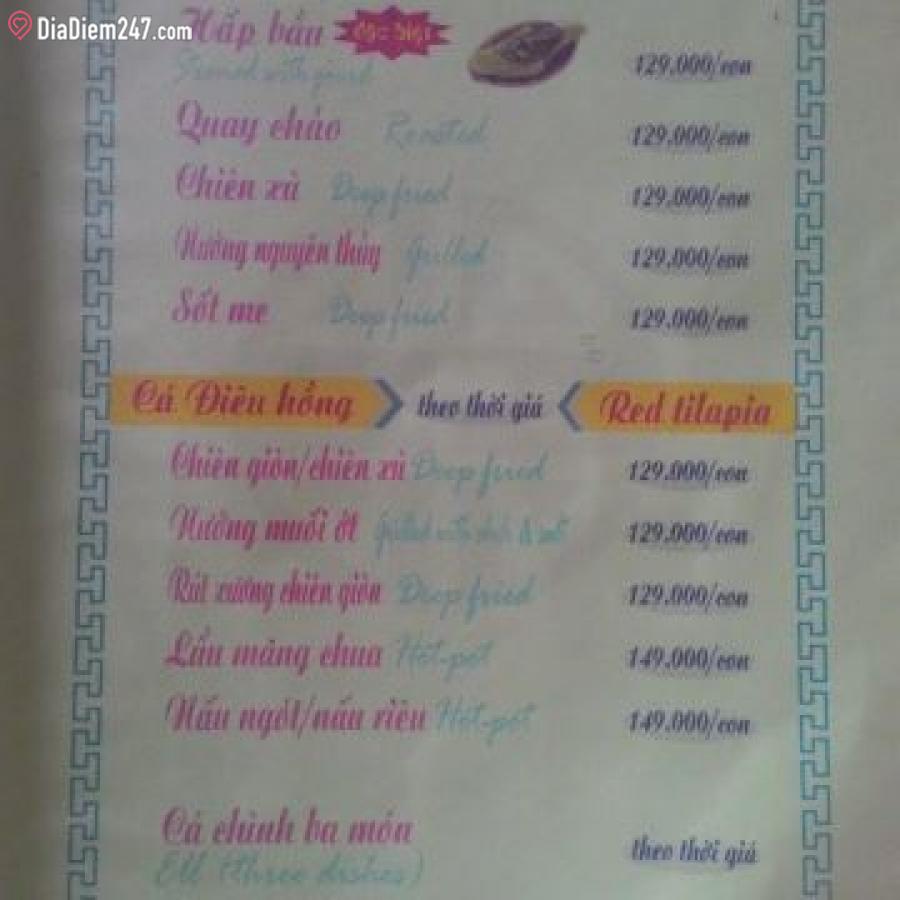 DiaDiem247.com
Hấp bầu đặc biệt
Steamed with gourd 129.000/con
Quay chảo Roasted 129.000/con
Chiên xù Deep fried 129.000/con
Nướng nguyên thủy Grilled 129.000/con
Sốt me Deep fried 129.000/con
Cá Diêu hồng theo thời giá Red tilapia
Chiên giòn/chiên xù Deep fried 129.000/con
Nướng muối ớt Grilled with chili & salt 129.000/con
Rút xương chiên giòn Deep fried 129.000/con
Lẩu măng chua Hot-pot 149.000/con
Nấu ngót/nấu riêu Hot-pot 149.000/con
Cá chình ba món
Ell (three dishes) theo thời giá